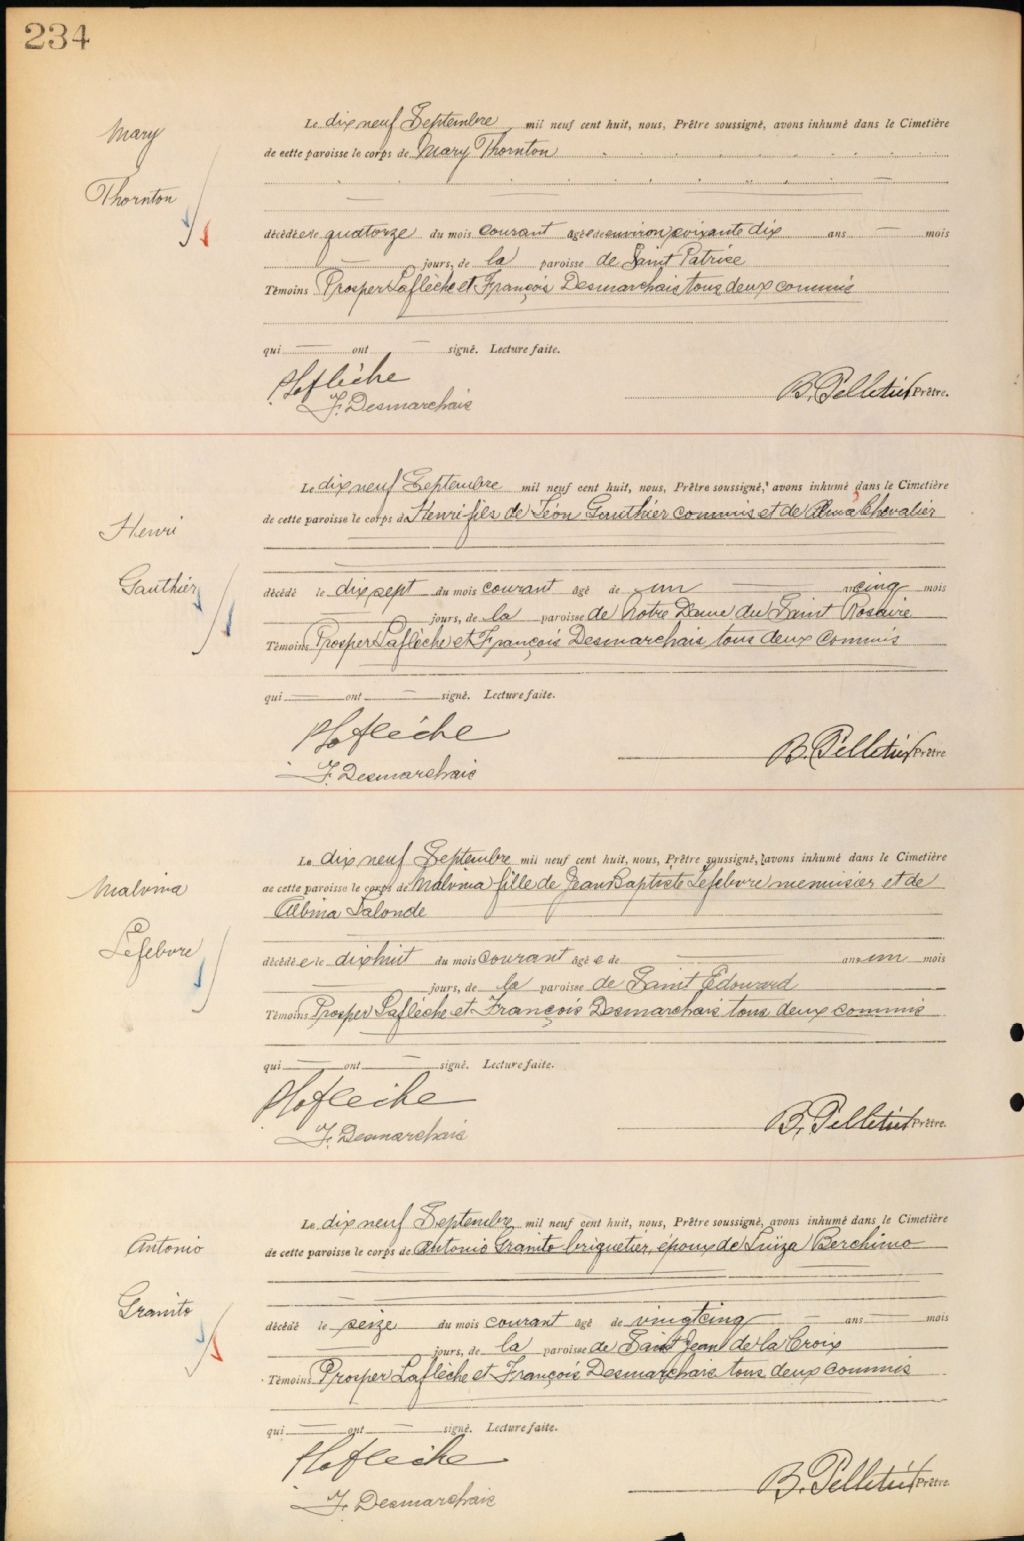 234
Mary
Thornton
Le dix neuf Septembre mil neuf cent huit, nous, Prêtre soussigné, avons inhumé dans le Cimetière
de cette paroisse le corps de Mary Thornton
décédée le quatorze du mois courant âgée de environ soixante dix ans — mois
— jours, de la paroisse de Saint Patrice
Témoins Prosper Laflèche et François Desmarchais tous deux commis
qui — ont — signé. Lecture faite.
P Laflèche
F. Desmarchais
B. Pelletier Prêtre.
Henri
Gauthier
Le dix neuf Septembre mil neuf cent huit, nous, Prêtre soussigné, avons inhumé dans le Cimetière
de cette paroisse le corps de Henri fils de Léon Gauthier commis et de Alma Chevalier
décédé le dix sept du mois courant âgé de un — an cinq mois
— jours, de la paroisse de Notre Dame du Saint Rosaire
Témoins Prosper Laflèche et François Desmarchais tous deux commis
qui — ont — signé. Lecture faite.
P Laflèche
F. Desmarchais
B. Pelletier Prêtre
Malvina
Lefebvre
Le dix neuf Septembre mil neuf cent huit, nous, Prêtre soussigné, avons inhumé dans le Cimetière
de cette paroisse le corps de Malvina fille de Jean Baptiste Lefebvre menuisier et de
Albina Lalonde
décédée le dix huit du mois courant âgée de — ans un mois
— jours, de la paroisse de Saint Edouard
Témoins Prosper Laflèche et François Desmarchais tous deux commis
qui — ont — signé. Lecture faite.
P Laflèche
F. Desmarchais
B. Pelletier Prêtre.
Antonio
Granito
Le dix neuf Septembre mil neuf cent huit, nous, Prêtre soussigné, avons inhumé dans le Cimetière
de cette paroisse le corps de Antonio Granito briquetier, époux de Luiza Berchimo
décédé le seize du mois courant âgé de vingt cinq — ans — mois
— jours, de la paroisse de Saint Jean de la Croix
Témoins Prosper Laflèche et François Desmarchais tous deux commis
qui — ont — signé. Lecture faite.
P Laflèche
F. Desmarchais
B. Pelletier Prêtre.